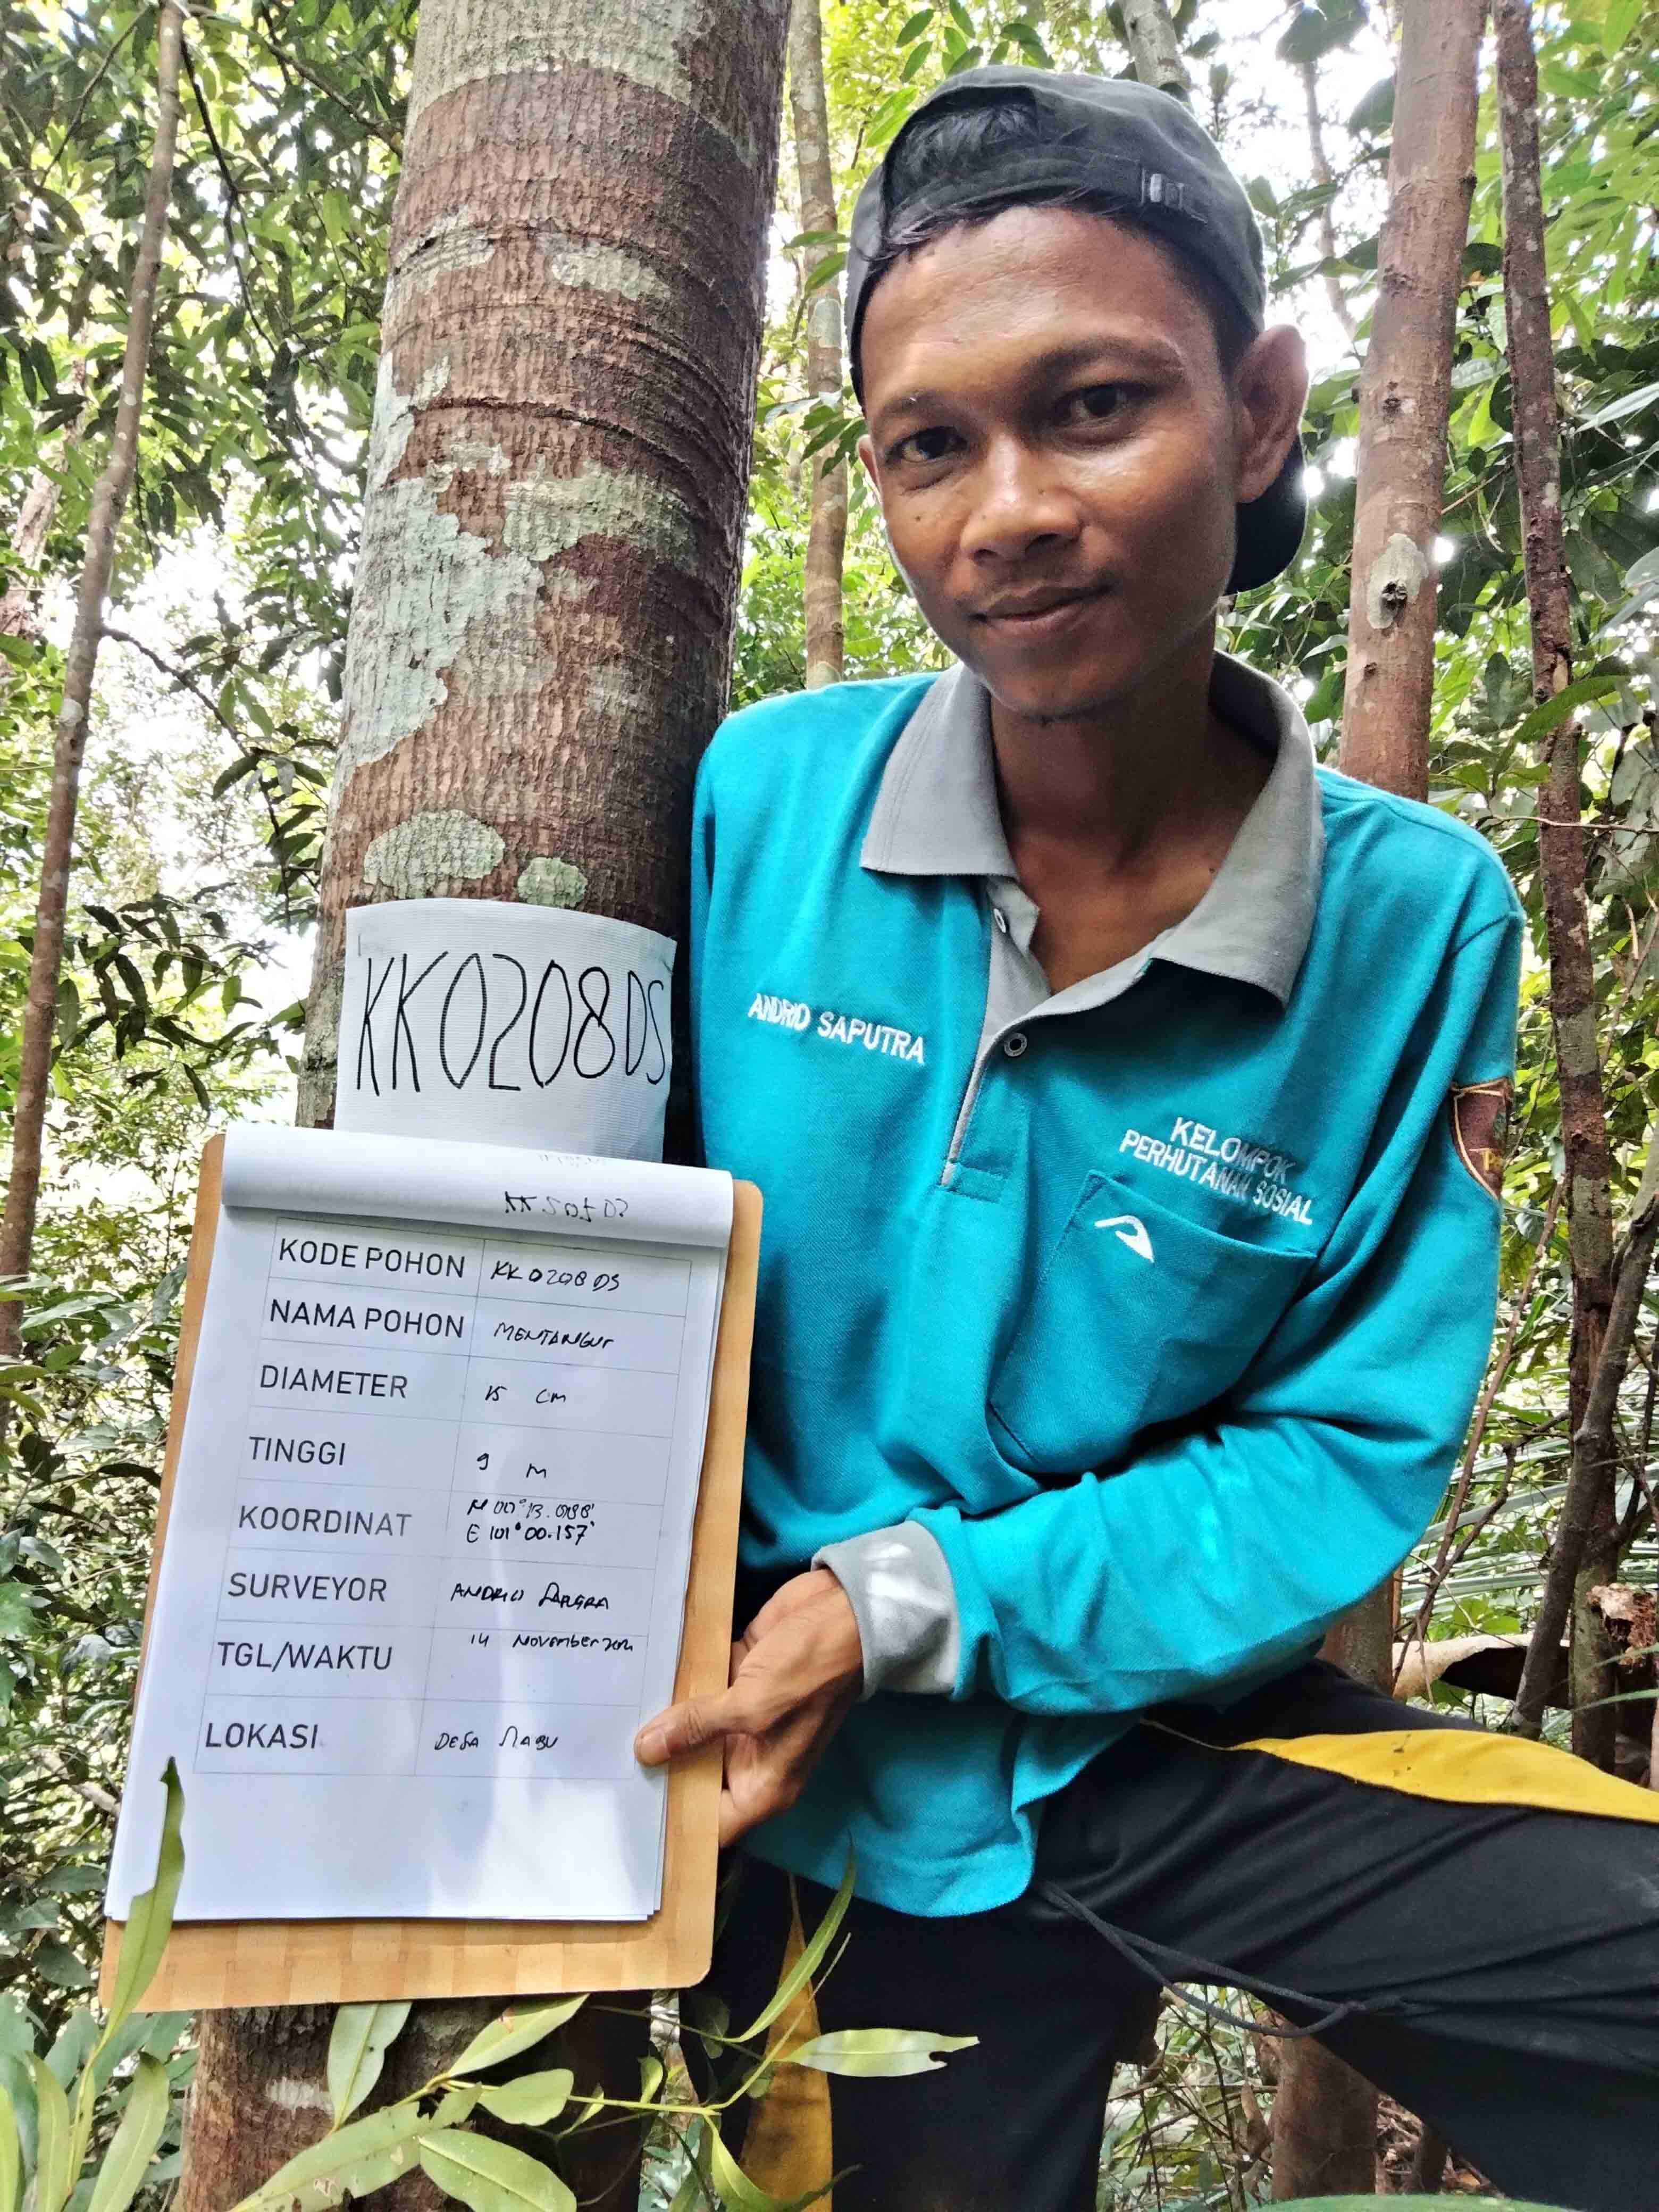 KK0208DS
ANDRIO SAPUTRA
KELOMPOK
PERHUTANAN SOSIAL
KODE POHON KK0208DS
NAMA POHON MENTANGUR
DIAMETER 15 cm
TINGGI 9 m
KOORDINAT N 00°13.088'
E 101°00.157'
SURVEYOR ANDRIO SAPUTRA
TGL/WAKTU 14 November
LOKASI DESA